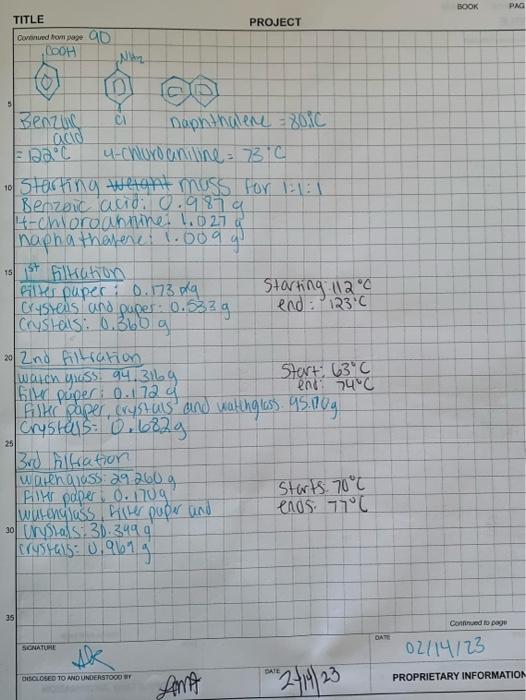 BOOK PAG
TITLE PROJECT
Continued from page 90
COOH NH2
Cl
Benzoic acid = 122°C
naphthalene = 80°C
4-chloroaniline = 73°C
Starting weight mass for 1:1:1
Benzoic acid: 0.987 g
4-chloroaniline: 1.027 g
naphathalene: 1.009 g
1st filtration
Filter paper: 0.173 g
Starting: 112°C
Crystals and paper: 0.533 g
end: 123°C
Crystals: 0.360 g
2nd filtration
watch glass: 94.316 g
Start: 63°C
filter paper: 0.172 g
end: 74°C
Filter paper, crystals and watchglass: 95.170 g
Crystals: 0.682 g
3rd filtration
watchglass: 29.260 g
Starts: 70°C
Filter paper: 0.170 g
ends: 77°C
watchglass, filter paper and
crystals: 30.399 g
crystals: 0.969 g
5
10
15
20
25
30
35
Continued to page
SIGNATURE
DATE
02/14/23
DISCLOSED TO AND UNDERSTOOD BY
DATE 2/14/23
PROPRIETARY INFORMATION